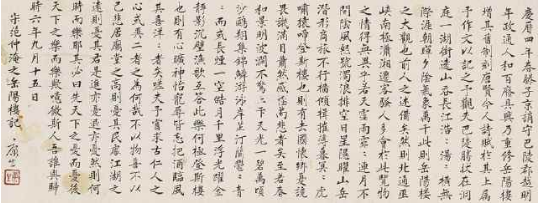 慶曆四年春滕子京謫守巴陵郡越明
年政通人和百廢具興乃重修岳陽樓
增其舊制刻唐賢今人詩賦於其上屬
予作文以記之予觀夫巴陵勝狀在洞
庭一湖銜遠山吞長江浩々湯々橫無
際涯朝暉夕陰氣象萬千此則岳陽樓
之大觀也前人之述備矣然則北通巫
峽南極瀟湘遷客騷人多會於此覽物
之情得無異乎若夫霪雨霏々連月不
開陰風怒號濁浪排空日星隱曜山岳
潛形商旅不行檣傾楫摧薄暮冥々虎
嘯猿啼登斯樓也則有去國懷鄉憂讒
畏譏滿目蕭然感極而悲者矣至若春
和景明波瀾不驚上下天光一碧萬頃
沙鷗翔集錦鱗游泳岸芷汀蘭郁々青
々而或長煙一空皓月千里浮光耀金
靜影沉璧漁歌互答此樂何極登斯樓
也則有心曠神怡寵辱皆忘把酒臨風
其喜洋々者矣嗟夫予嘗求古仁人之
心或異二者之為何哉不以物喜不以
己悲居廟堂之高則憂其民處江湖之
遠則憂其君是進亦憂退亦憂然則何
時而樂耶其必曰先天下之憂而憂後
天下之樂而樂歟噫微斯人吾誰與歸
時六年九月十五日
宋范仲淹之岳陽樓記